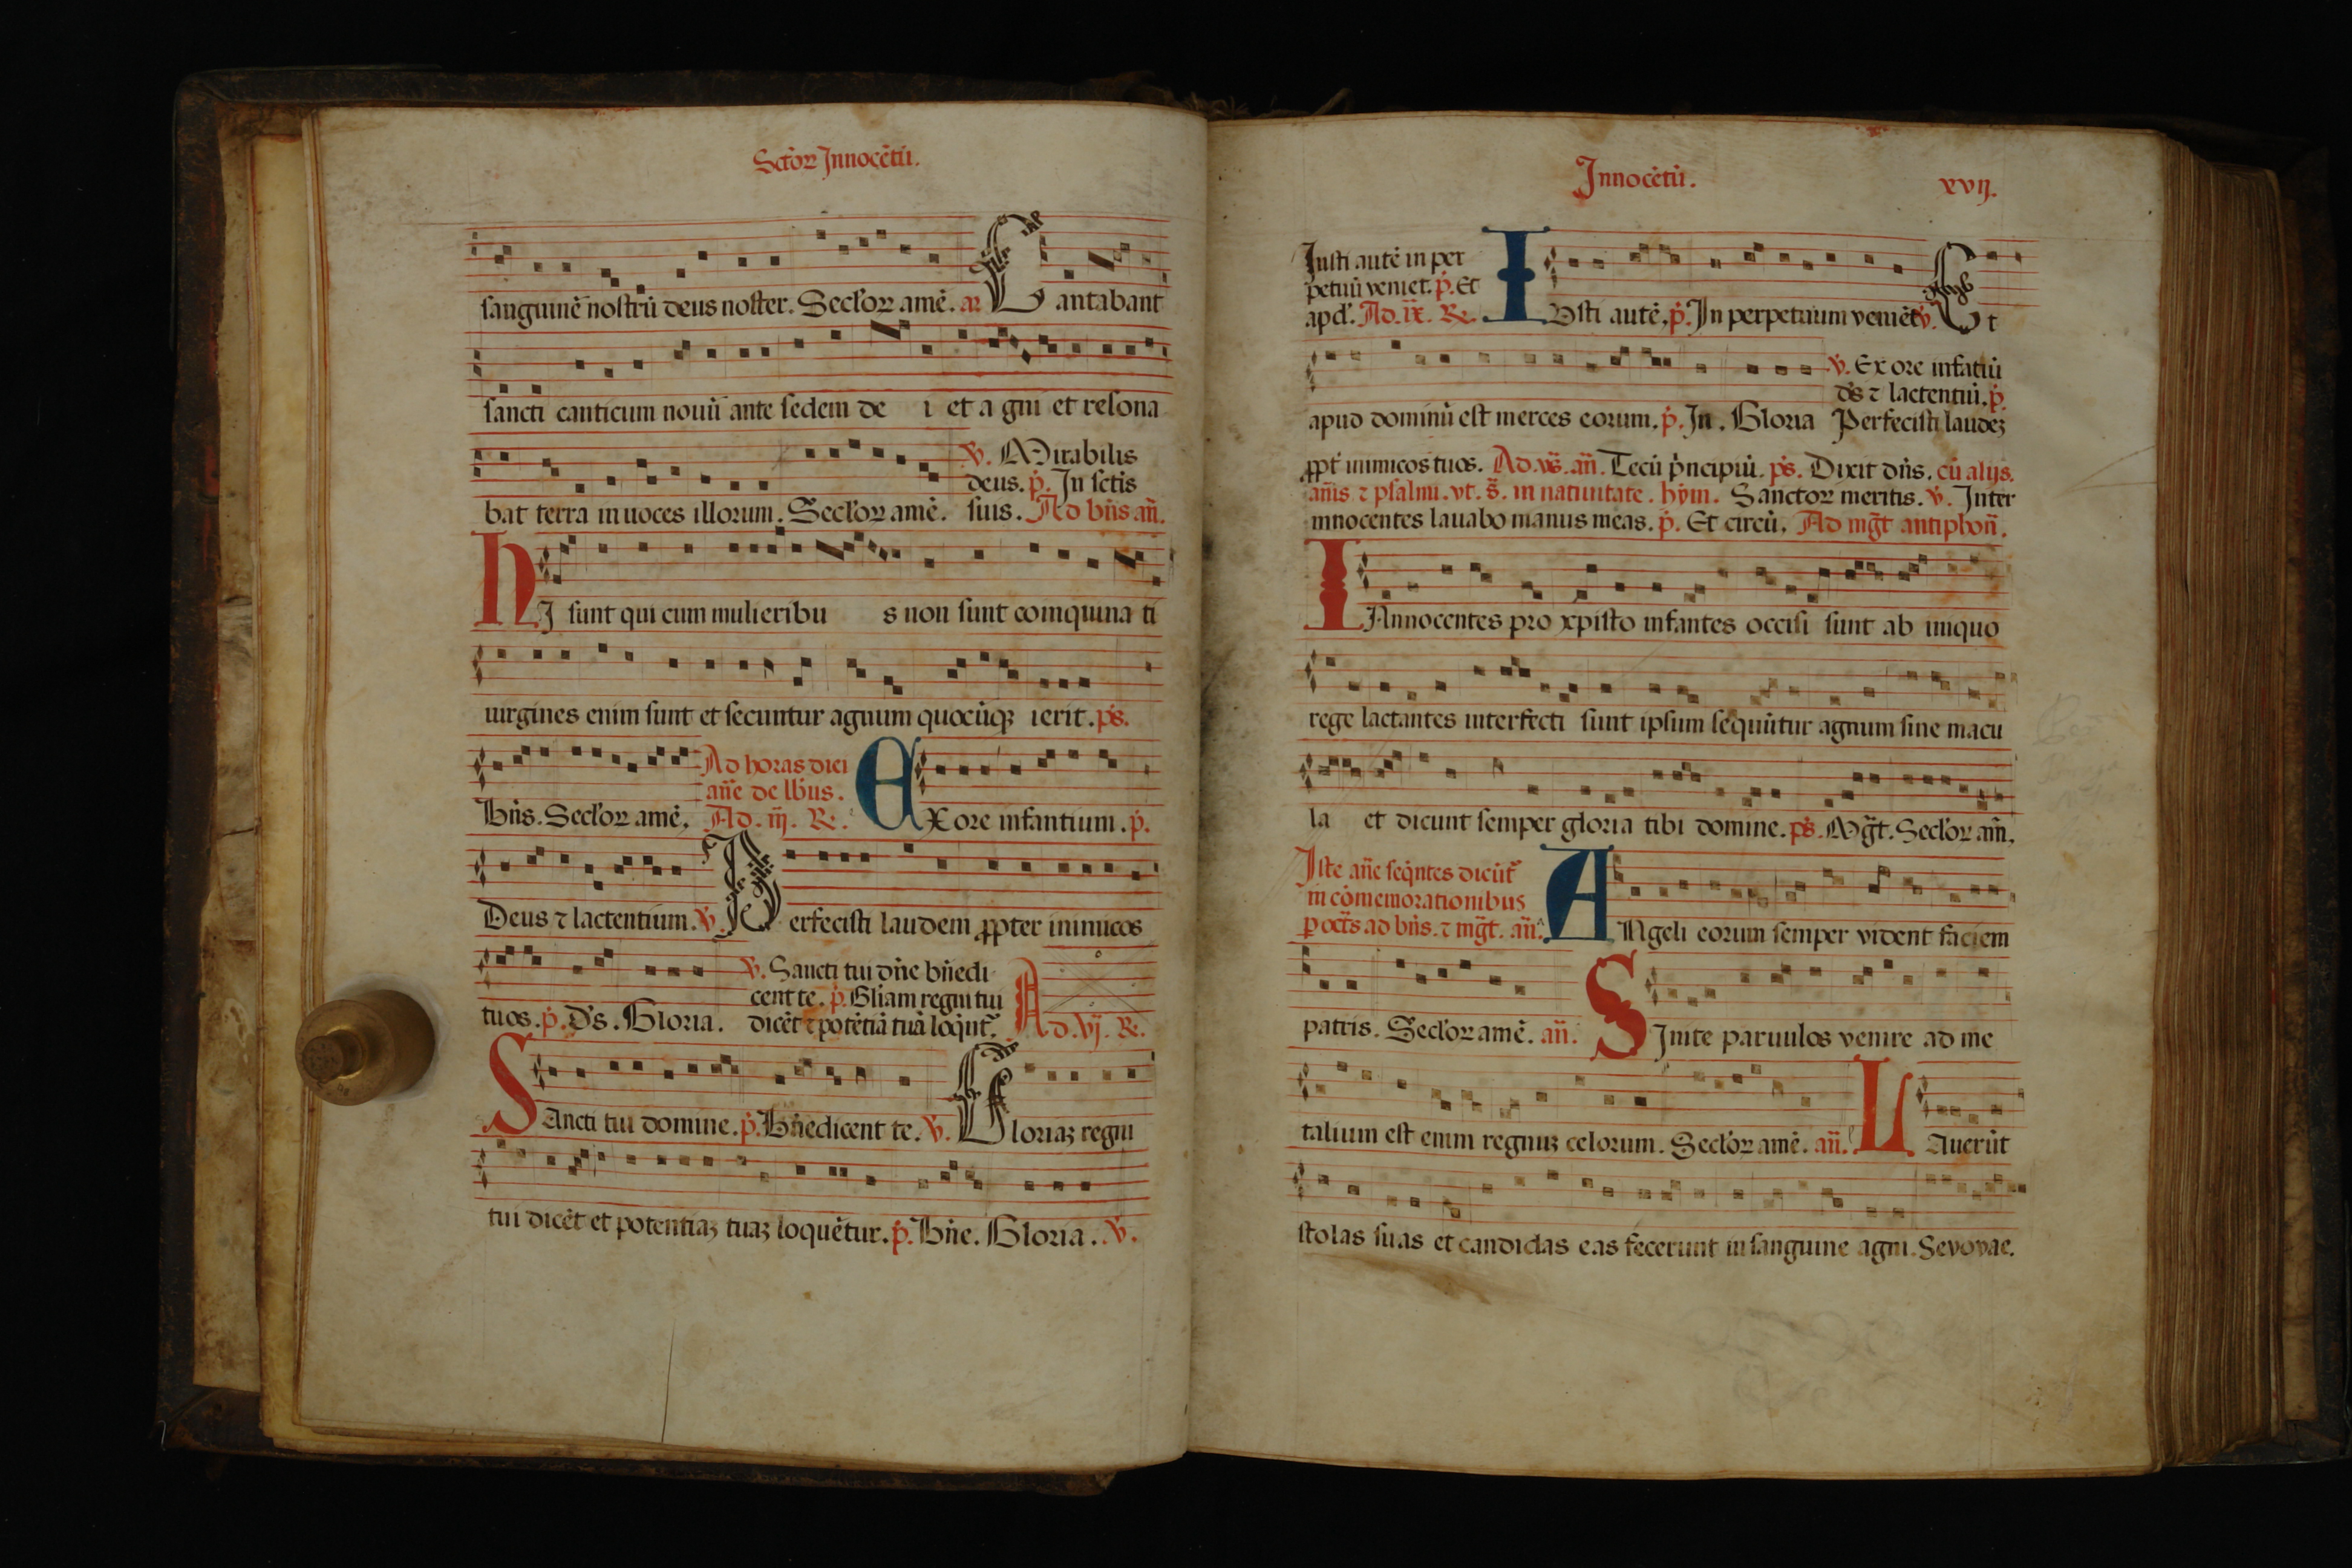 Sctōꝝ Innocētū.
sanguinē nostrū deus noster. Secl'oꝝ amē. añ Cantabant
sancti canticum nouū ante sedem de i et a gni et resona
ꝟ. Mirabilis
deus. p̄. In sctīs
bat terra in uoces illorum. Secl'oꝝ amē. suis. Ad bn̄s an̄.
HJ sunt qui cum mulieribu s non sunt coinquina ti
uirgines enim sunt et secuntur agnum quocūqꝫ ierit. ps̄.
Ad horas diei
an̄e de lb̄us.
Bn̄s. Secl'oꝝ amē. Ad. iij. R. EXore infantium. p̄.
Deus ⁊ lactentium. ꝟ. Perfecisti laudem ꝓpter inimicos
ꝟ. Sancti tui dn̄e bn̄edi
cent te. p̄. Gl̄iam regni tui
tuos. p̄. Ds̄. Gloria. dicēt ⁊ potētiā tuā loq̄nt᷑. Ad. vj. R.
SAncti tui domine. p̄. Bn̄edicent te. ꝟ. Gloriaꝫ regni
tui dicēt et potentiaꝫ tuaꝫ loquētur. p̄. Bn̄e. Gloria. ꝟ.
Innocētū. xvij.
Iusti autē in per
petuū veniet. p̄. Et
apd'. Ad. ix. R. IVsti autē. p̄. In perpetuum veniēt ꝟ. Et
ꝟ. Ex ore infātiū
ds̄ ⁊ lactentiū. p̄.
apud dominū est merces eorum. p̄. In. Gloria Perfecisti laudeꝫ
ꝓpt' inimicos tuos. Ad. vs̄. an̄. Tecū p̄ncipiū. ps̄. Dixit dn̄s. cū alijs.
an̄is ⁊ psalmi. vt. s̄. in natiuitate. hȳm. Sanctoꝝ meritis. ꝟ. Inter
innocentes lauabo manus meas. p̄. Et circū. Ad mḡt antiphon̄.
INnocentes pro xpisto infantes occisi sunt ab iniquo
rege lactantes interfecti sunt ipsum sequūtur agnum sine macu
la et dicunt semper gloria tibi domine. ps̄. Mḡt. Secl'oꝝ am̄.
Iste an̄e seq̄ntes dicūt᷑
in cōmemorationibus
p oct̄s ad bn̄s. ⁊ mḡt. an̄. ANgeli eorum semper vident faciem
patris. Secl'oꝝ amē. an̄. SInite paruulos venire ad me
talium est enim regnuꝫ celorum. Secl'oꝝ amē. an̄. LAuerūt
stolas suas et candidas eas fecerunt in sanguine agni. Seuouae.